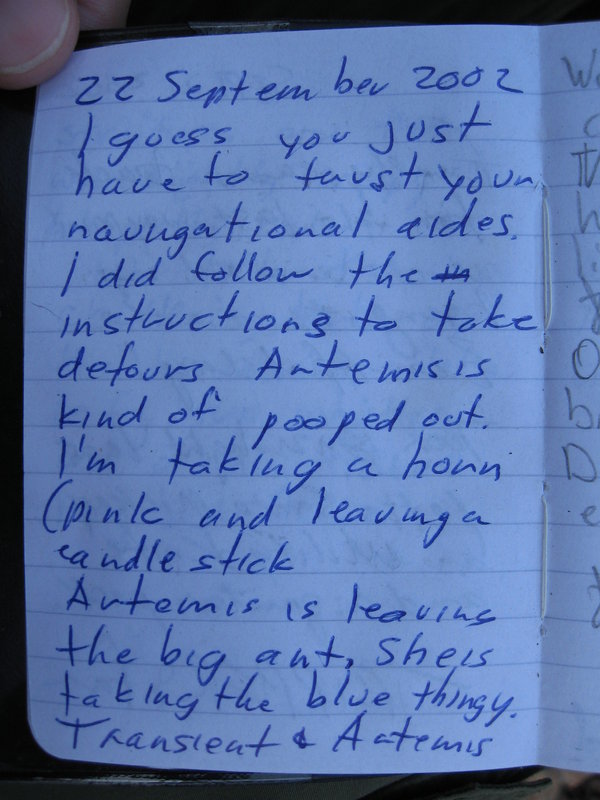 22 September 2002
I guess you just
have to trust your
navugational aides.
I did follow the
instructions to take
detours Artemis is
kind of pooped out.
I'm taking a horn
(pink and leaving a
candle stick
Artemis is leaving
the big ant, She is
taking the blue thingy.
Transient & Artemis